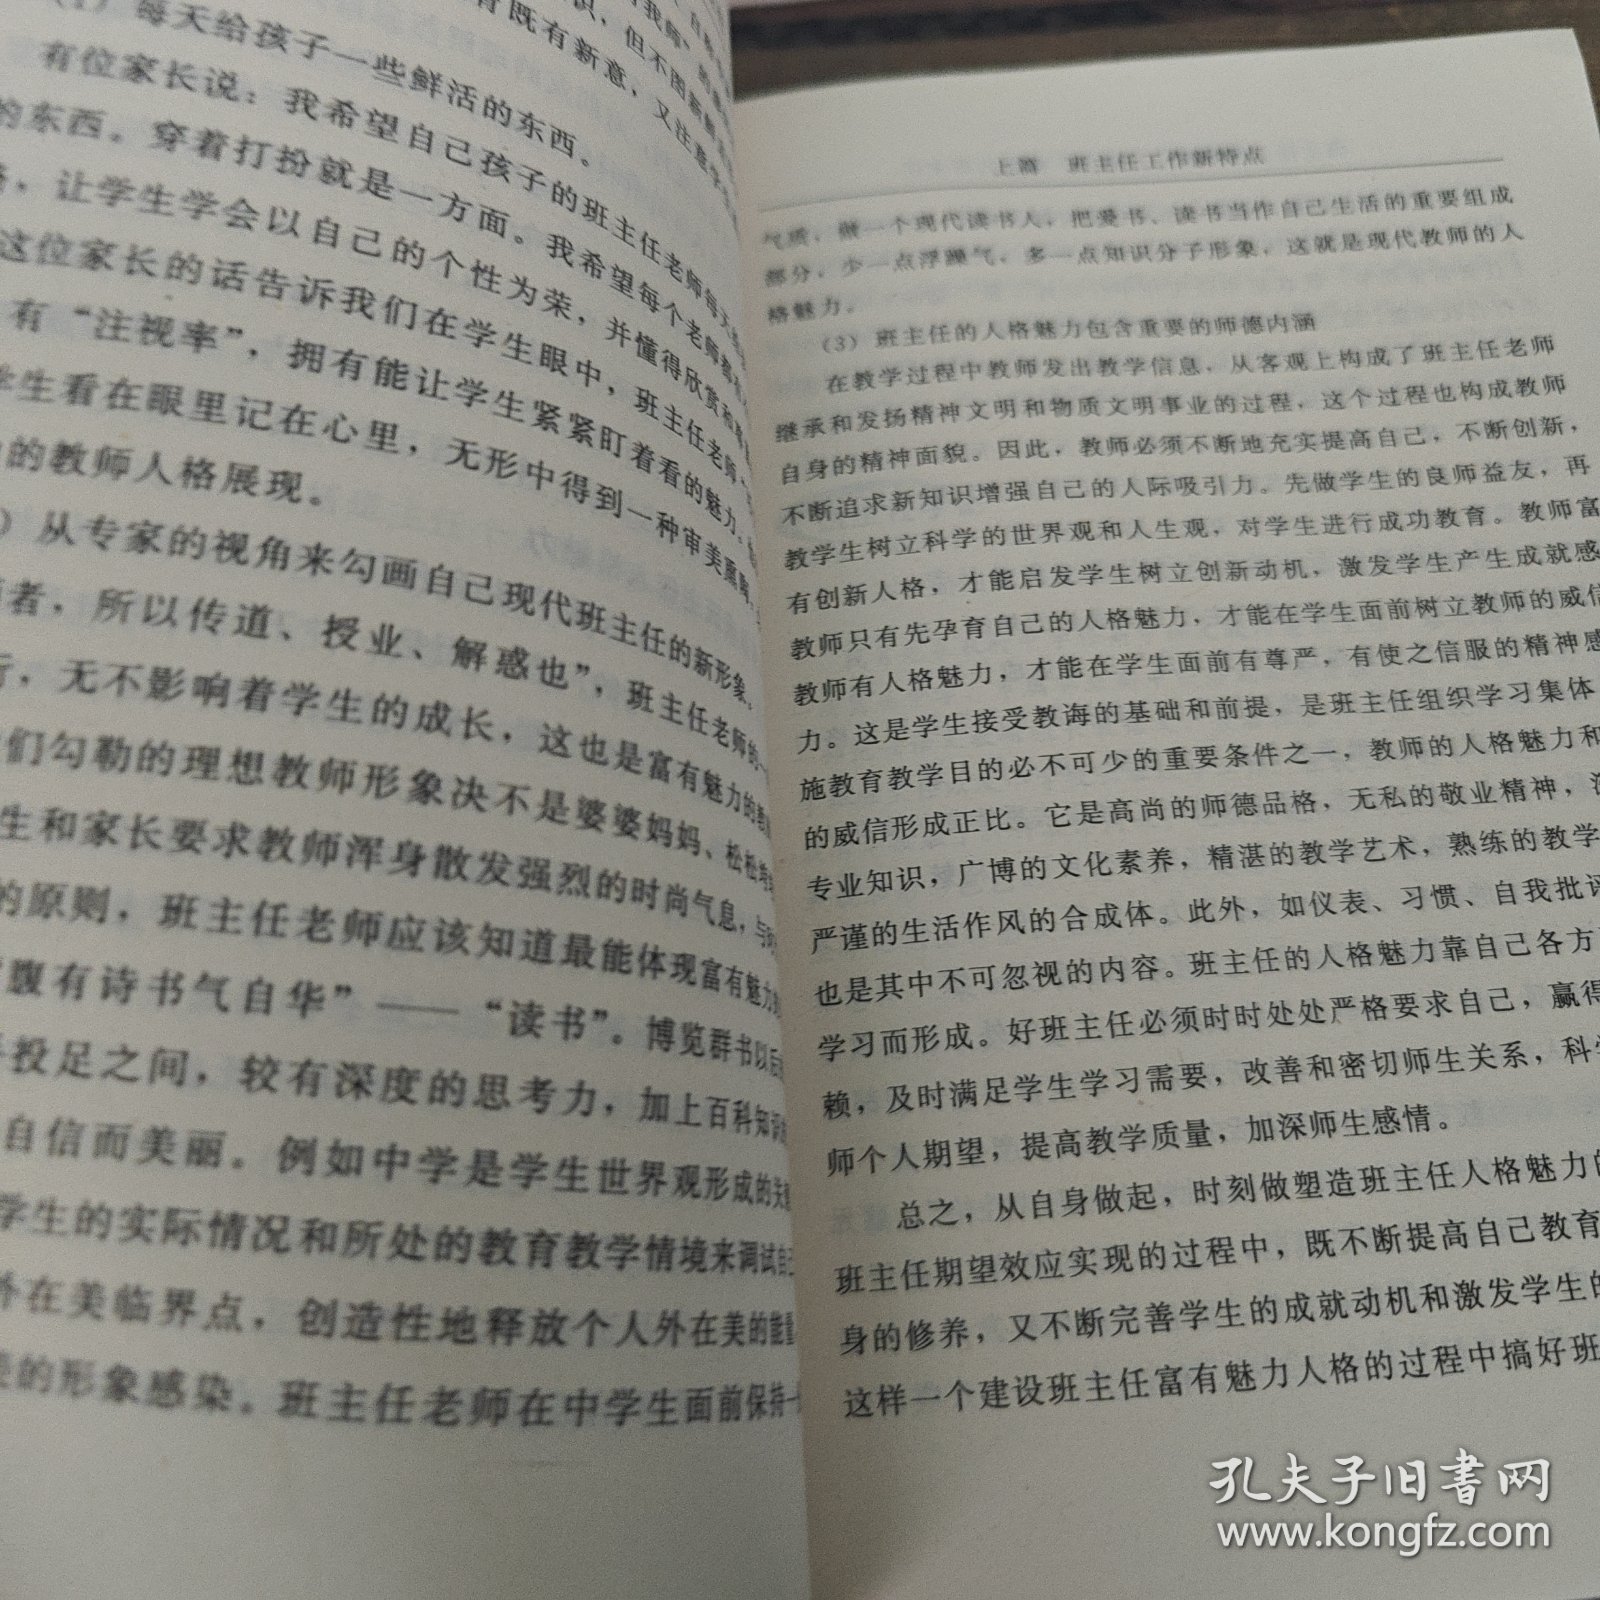 （1）每天给孩子一些鲜活的东西。
有位家长说：我希望自己孩子的班主任老师每天
的东西。穿着打扮就是一方面。我希望每个老师都
，让学生学会以自己的个性为荣，并懂得欣赏和
这位家长的话告诉我们在学生眼中，班主任老师
有“注视率”，拥有能让学生紧紧盯着看的魅力。
学生看在眼里记在心里，无形中得到一种审美熏陶
的教师人格展现。
）从专家的视角来勾画自己现代班主任的新形象。
者，所以传道、授业、解惑也”，班主任老师的一
，无不影响着学生的成长，这也是富有魅力的教
们勾勒的理想教师形象决不是婆婆妈妈、松松垮垮
生和家长要求教师浑身散发强烈的时尚气息，与
的原则，班主任老师应该知道最能体现富有魅力
“腹有诗书气自华”——“读书”。博览群书以后
投足之间，较有深度的思考力，加上百科知识
自信而美丽。例如中学是学生世界观形成的关
学生的实际情况和所处的教育教学情境来调试自己
外在美临界点，创造性地释放个人外在美的能量
的形象感染。班主任老师在中学生面前保持一
上篇　班主任工作新特点
气质，做一个现代读书人，把爱书、读书当作自己生活的重要组成
部分，少一点浮躁气，多一点知识分子形象，这就是现代教师的人
格魅力。
（3）班主任的人格魅力包含重要的师德内涵
在教学过程中教师发出教学信息，从客观上构成了班主任老师
继承和发扬精神文明和物质文明事业的过程，这个过程也构成教师
自身的精神面貌。因此，教师必须不断地充实提高自己，不断创新，
不断追求新知识增强自己的人际吸引力。先做学生的良师益友，再
教学生树立科学的世界观和人生观，对学生进行成功教育。教师富
有创新人格，才能启发学生树立创新动机，激发学生产生成就感
教师只有先孕育自己的人格魅力，才能在学生面前树立教师的威信
教师有人格魅力，才能在学生面前有尊严，有使之信服的精神感
力。这是学生接受教诲的基础和前提，是班主任组织学习集体
施教育教学目的必不可少的重要条件之一，教师的人格魅力和
的威信形成正比。它是高尚的师德品格，无私的敬业精神，
专业知识，广博的文化素养，精湛的教学艺术，熟练的教学
严谨的生活作风的合成体。此外，如仪表、习惯、自我批评
也是其中不可忽视的内容。班主任的人格魅力靠自己各方
学习而形成。好班主任必须时时处处严格要求自己，赢得
赖，及时满足学生学习需要，改善和密切师生关系，科学
师个人期望，提高教学质量，加深师生感情。
总之，从自身做起，时刻做塑造班主任人格魅力的
班主任期望效应实现的过程中，既不断提高自己教育
身的修养，又不断完善学生的成就动机和激发学生的
这样一个建设班主任富有魅力人格的过程中搞好班
孔夫子旧书网
www.kongfz.com